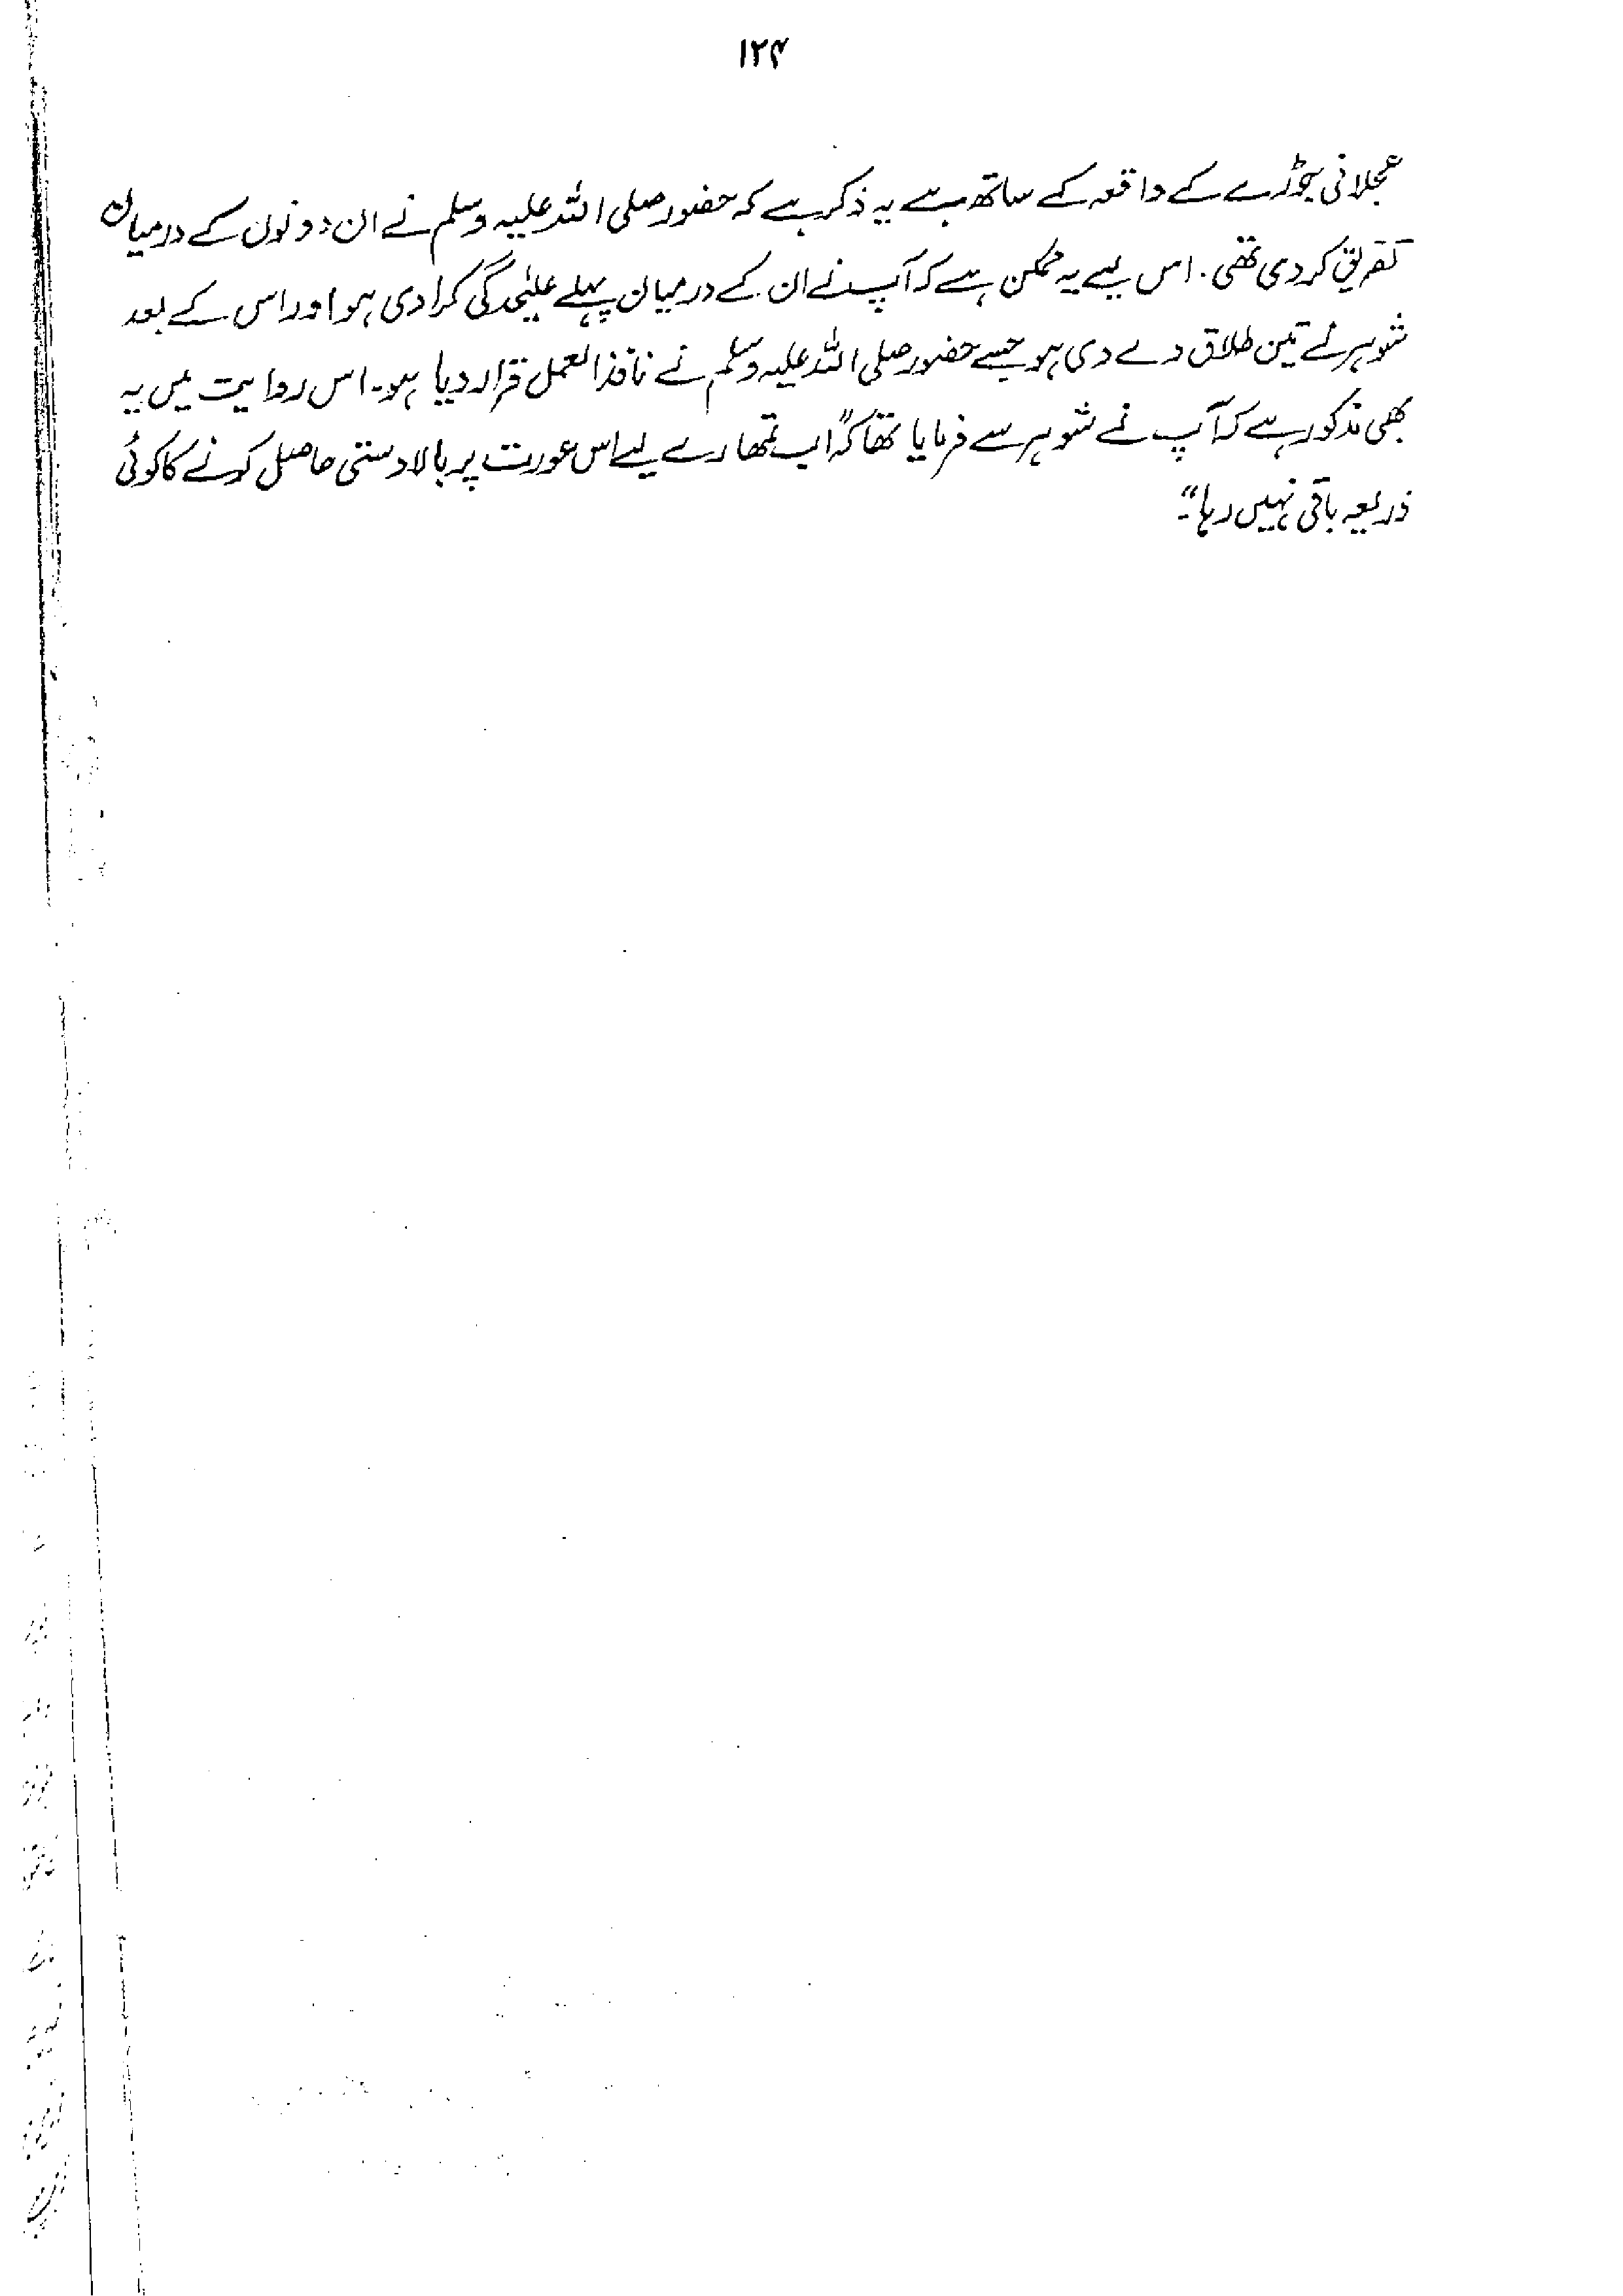 ۱۲۴
عجلانی جوڑے کے واقعہ کے ساتھ ہے یہ ذکر ہے کہ حضور صلی اللہ علیہ وسلم نے ان دونوں کے درمیان
تفریق کر دی تھی۔ اس لیے یہ ممکن ہے کہ آپ نے ان کے درمیان پہلے علیٰحدگی کرا دی ہو اور اس کے بعد
شوہر نے تین طلاق دے دی ہو جسے حضور صلی اللہ علیہ وسلم نے نافذ العمل قرار دیا ہو۔ اس روایت میں یہ
بھی مذکور ہے کہ آپ نے شوہر سے فرمایا تھا کہ "اب تمھارے لیے اس عورت پر بالادستی حاصل کرنے کا کوئی
ذریعہ باقی نہیں رہا"۔